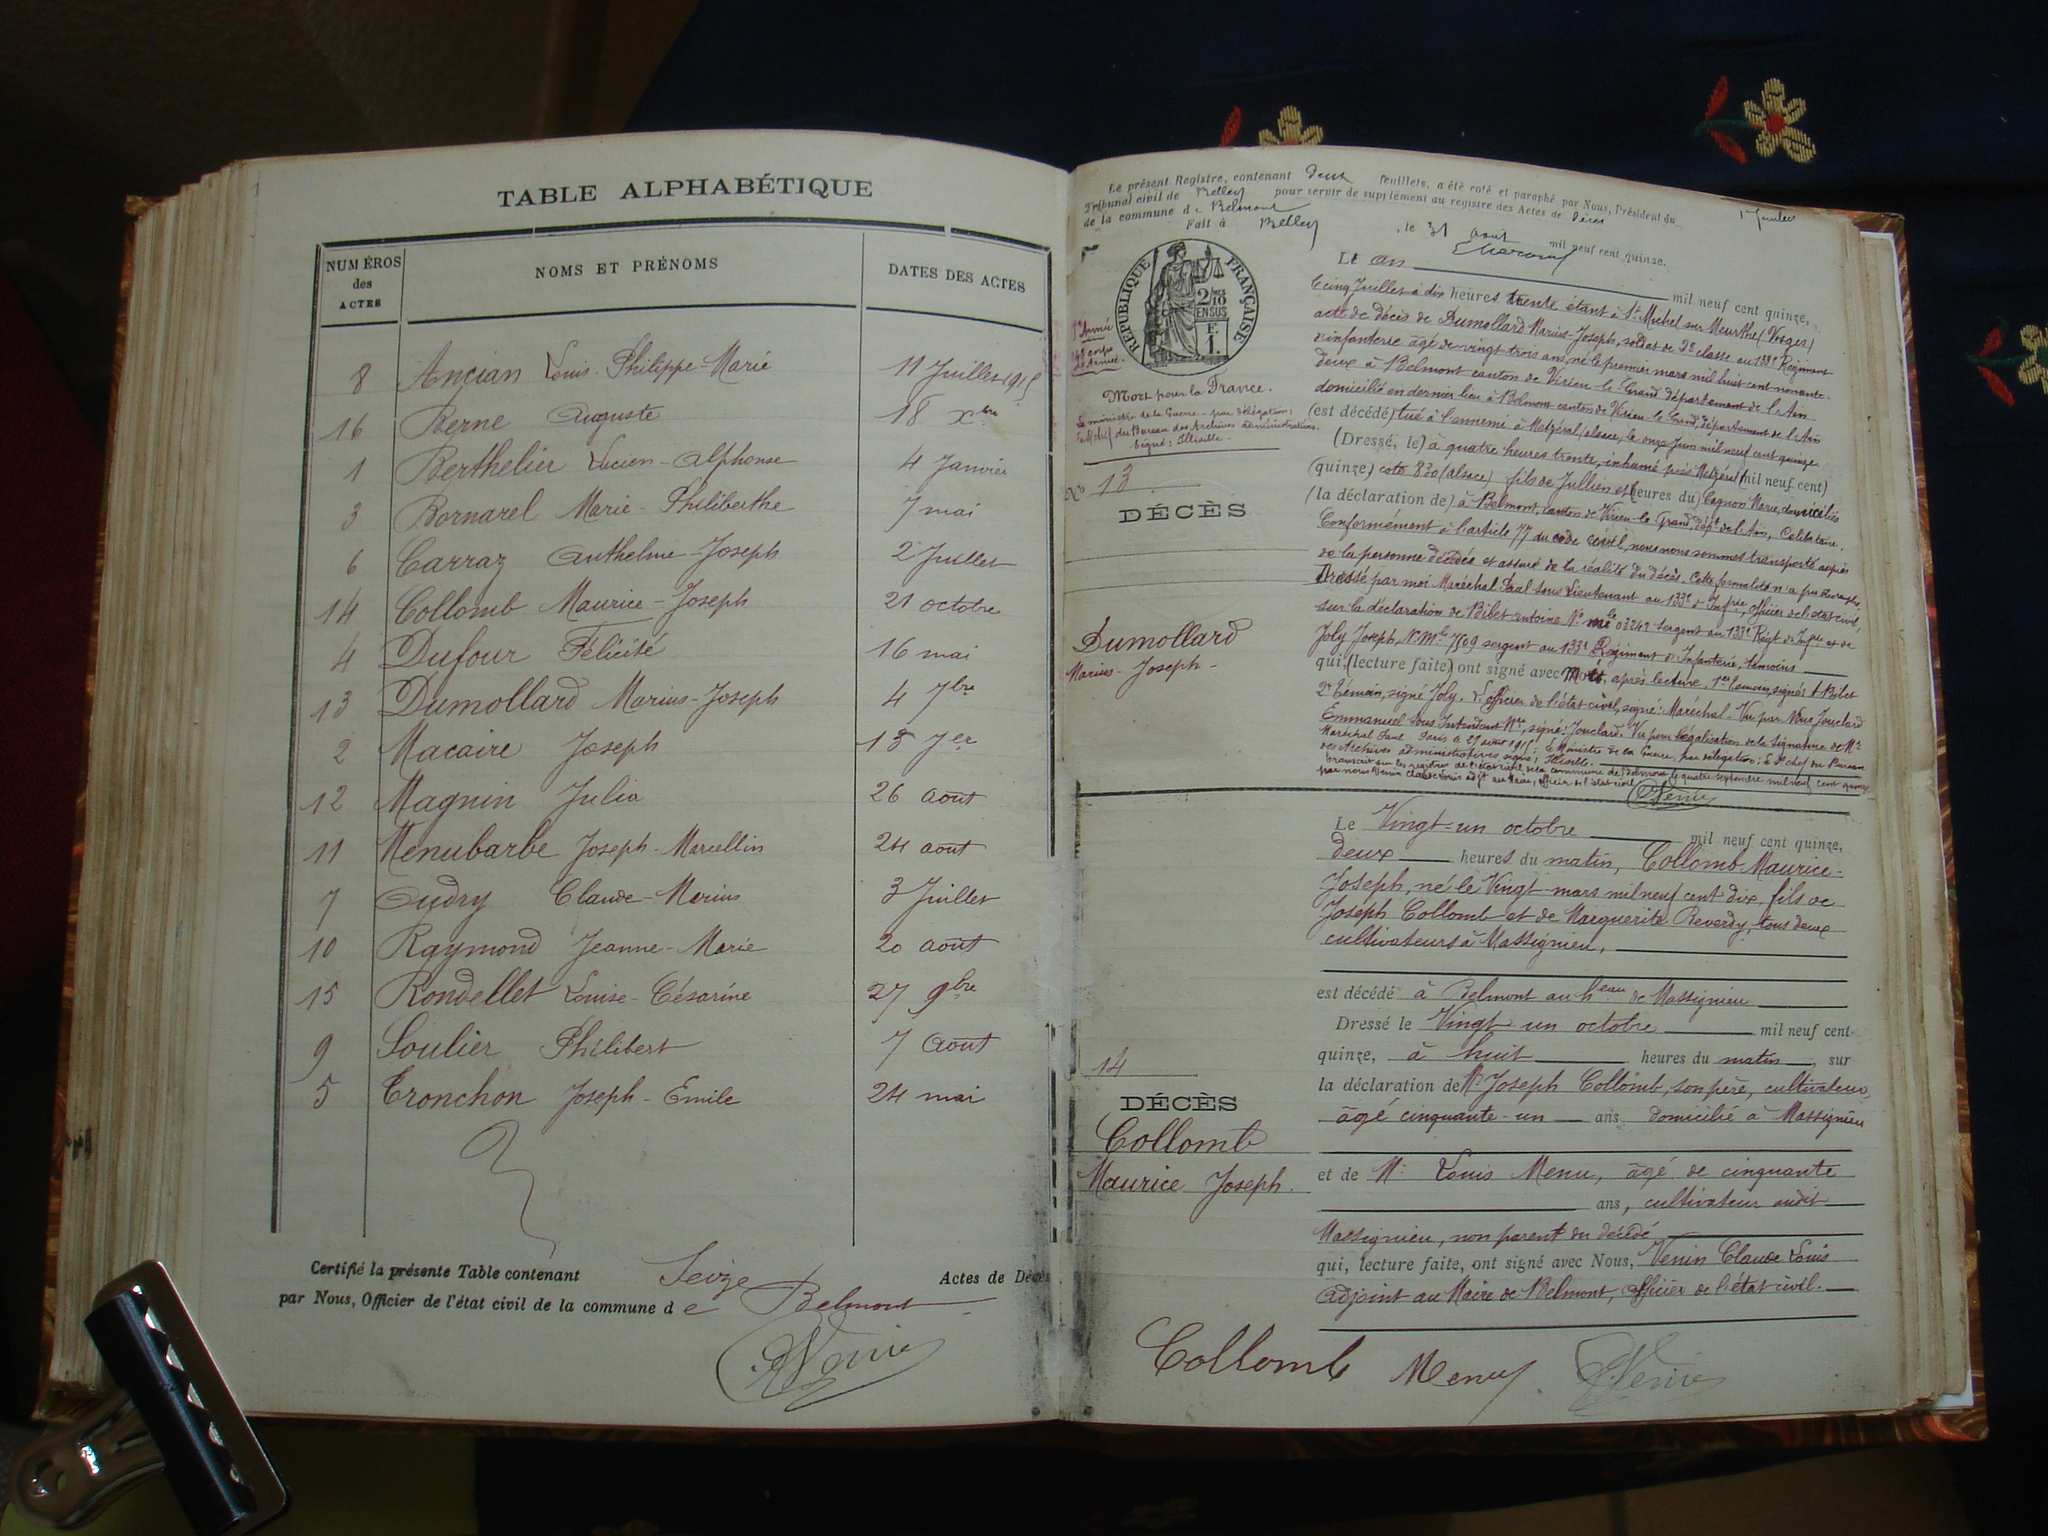 TABLE ALPHABÉTIQUE
NUMÉROS des ACTES
NOMS ET PRÉNOMS
DATES DES ACTES
8 Ancian Louis-Philippe-Marie 11 Juillet 1915
16 Berne Auguste 18 Xbre
1 Berthelier Lucien-Alphonse 4 Janvier
3 Bornarel Marie-Philiberthe 7 mai
6 Carraz Anthelme-Joseph 2 Juillet
14 Collomb Maurice-Joseph 21 octobre
4 Dufour Félicité 16 mai
13 Dumollard Marius-Joseph 4 7bre
2 Macaire Joseph 18 Jer
12 Magnin Julia 26 Août
11 Menubarbe Joseph-Marcellin 24 août
7 Oudry Claude-Marius 3 Juillet
10 Raymond Jeanne-Marie 20 août
15 Rondellet Louise-Césarine 27 9bre
9 Soulier Philibert 7 Août
5 Tronchon Joseph-Emile 24 mai
Certifié la présente Table contenant Seize Actes de Décès
par Nous, Officier de l'état civil de la commune de Belmont
Le présent Registre, contenant deux feuillets, a été coté et paraphé par Nous, Président du
Tribunal civil de Belley pour servir de supplément au registre des Actes de décès
de la commune de Belmont
Fait à Belley, le 31 août mil neuf cent quinze.
RÉPUBLIQUE FRANÇAISE
2/10
EN SUS
Mort pour la France.
Le ministre de la Guerre par délégation,
du Bureau des Archives administratives.
No 13
DÉCÈS
Dumollard
Marius-Joseph-
Le an mil neuf cent quinze,
le cinq Juillet à dix heures trente étant à St Michel sur Meurthe (Vosges)
acte de décès de Dumollard Marius-Joseph, soldat de 2e classe au 133e Régiment
d'infanterie âgé de vingt trois ans, né le premier mars mil huit cent nonante-
deux à Belmont canton de Virieu-le-Grand département de l'Ain
domicilié en dernier lieu à Belmont canton de Virieu-le-Grand, département de l'Ain
(est décédé) tué à l'ennemi à Metzéral (alsace, le onze Juin mil neuf cent quinze
(Dressé, le) à quatre heures trente, inhumé près Metzéral (mil neuf cent)
(quinze) cote 830 (alsace) fils de Jullien et (heures du) Cagnon Marie, domiciliés
(la déclaration de) à Belmont, canton de Virieu-le-Grand, dépt de l'Ain, Célibataire.
Conformément à l'article 77 du code civil, nous nous sommes transporté auprès
de la personne décédée et assuré de la réalité du décès. Cette formalité n'a pu
Dressé par moi Maréchal Paul Sous Lieutenant au 133e d'Infrie, officier de l'état civil,
sur la déclaration de Bibet antoine No mle 03242 sergent au 133e Régt de Infie et de
Joly Joseph, No mle 7509 sergent au 133e Régiment d'Infanterie, témoins
qui (lecture faite) ont signé avec Moi, après lecture, 1er témoin, signé: A Bibet
2e témoin, signé Joly. L'officier de l'état civil, signé: Maréchal. Vu par Nous Jouclard
Emmanuel Sous Intendant Mre, signé: Jouclard. Vu pour légalisation de la signature de Mr
Maréchal Paul Paris le 27 août 1915; le Ministre de la Guerre, par délégation; le chef du Bureau
des Archives administratives signé:
transcrit sur les registres de l'état civil de la commune de Belmont le quatre septembre mil neuf cent quinze
par nous Venin Claude Louis adjt au Maire, officier de l'état civil
Le Vingt-un octobre mil neuf cent quinze,
deux heures du matin, Collomb Maurice-
Joseph, né le Vingt mars mil neuf cent dix, fils de
Joseph Collomb et de Marguerite Reverdy, tous deux
cultivateurs à Massignieu,
est décédé à Belmont au heau de Massignieu
Dressé le Vingt-un octobre mil neuf cent-
quinze, à huit heures du matin, sur
la déclaration de Mr Joseph Collomb, son père, cultivateur,
âgé cinquante-un ans domicilié à Massignieu
et de Mr Louis Menu, âgé de cinquante
ans, cultivateur audit
Massignieu, non parent du décédé
qui, lecture faite, ont signé avec Nous, Venin Claude Louis
adjoint au Maire de Belmont, officier de l'état civil.
14
DÉCÈS
Collomb
Maurice Joseph.
Collomb Menu Venin